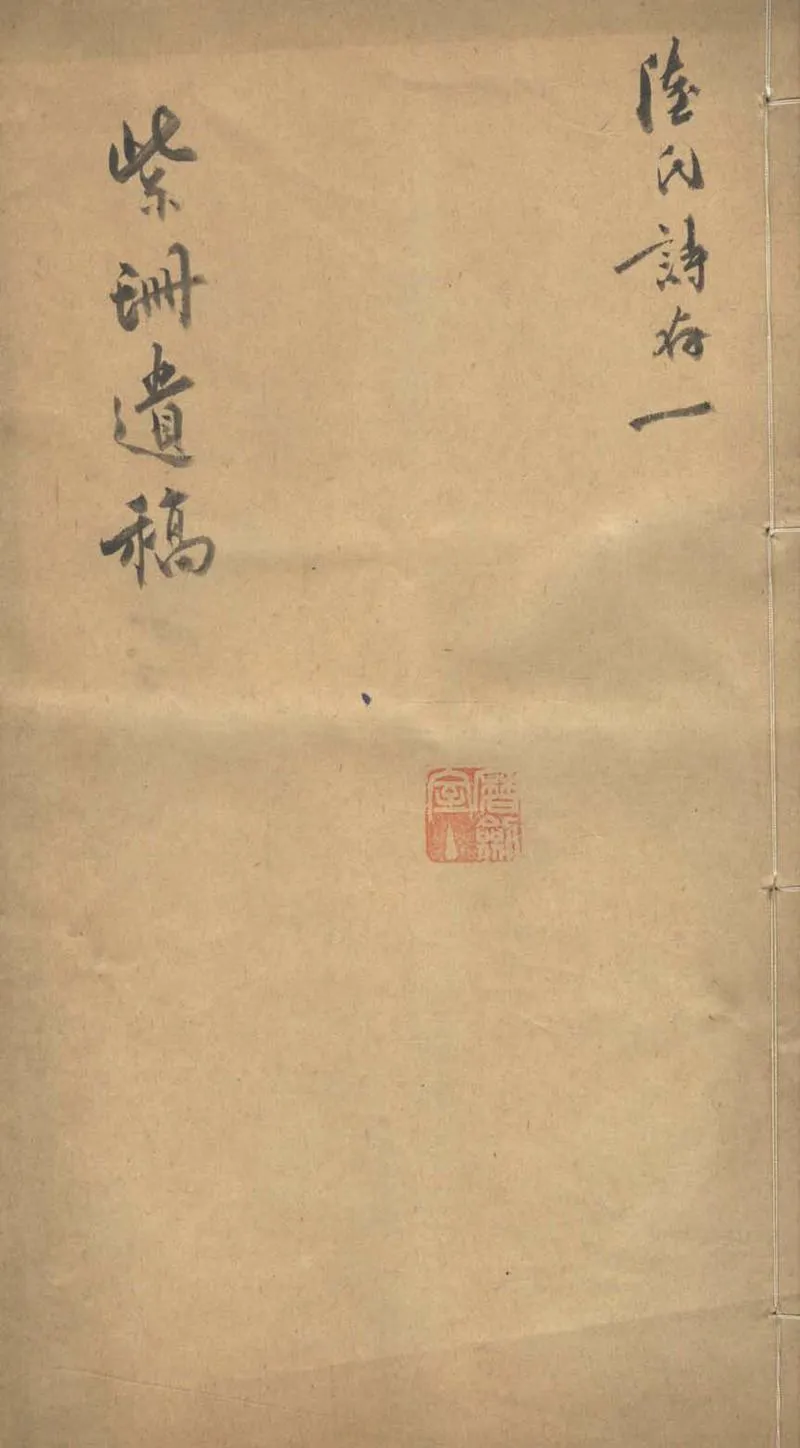 陸氏詩存一
紫珊遺稿